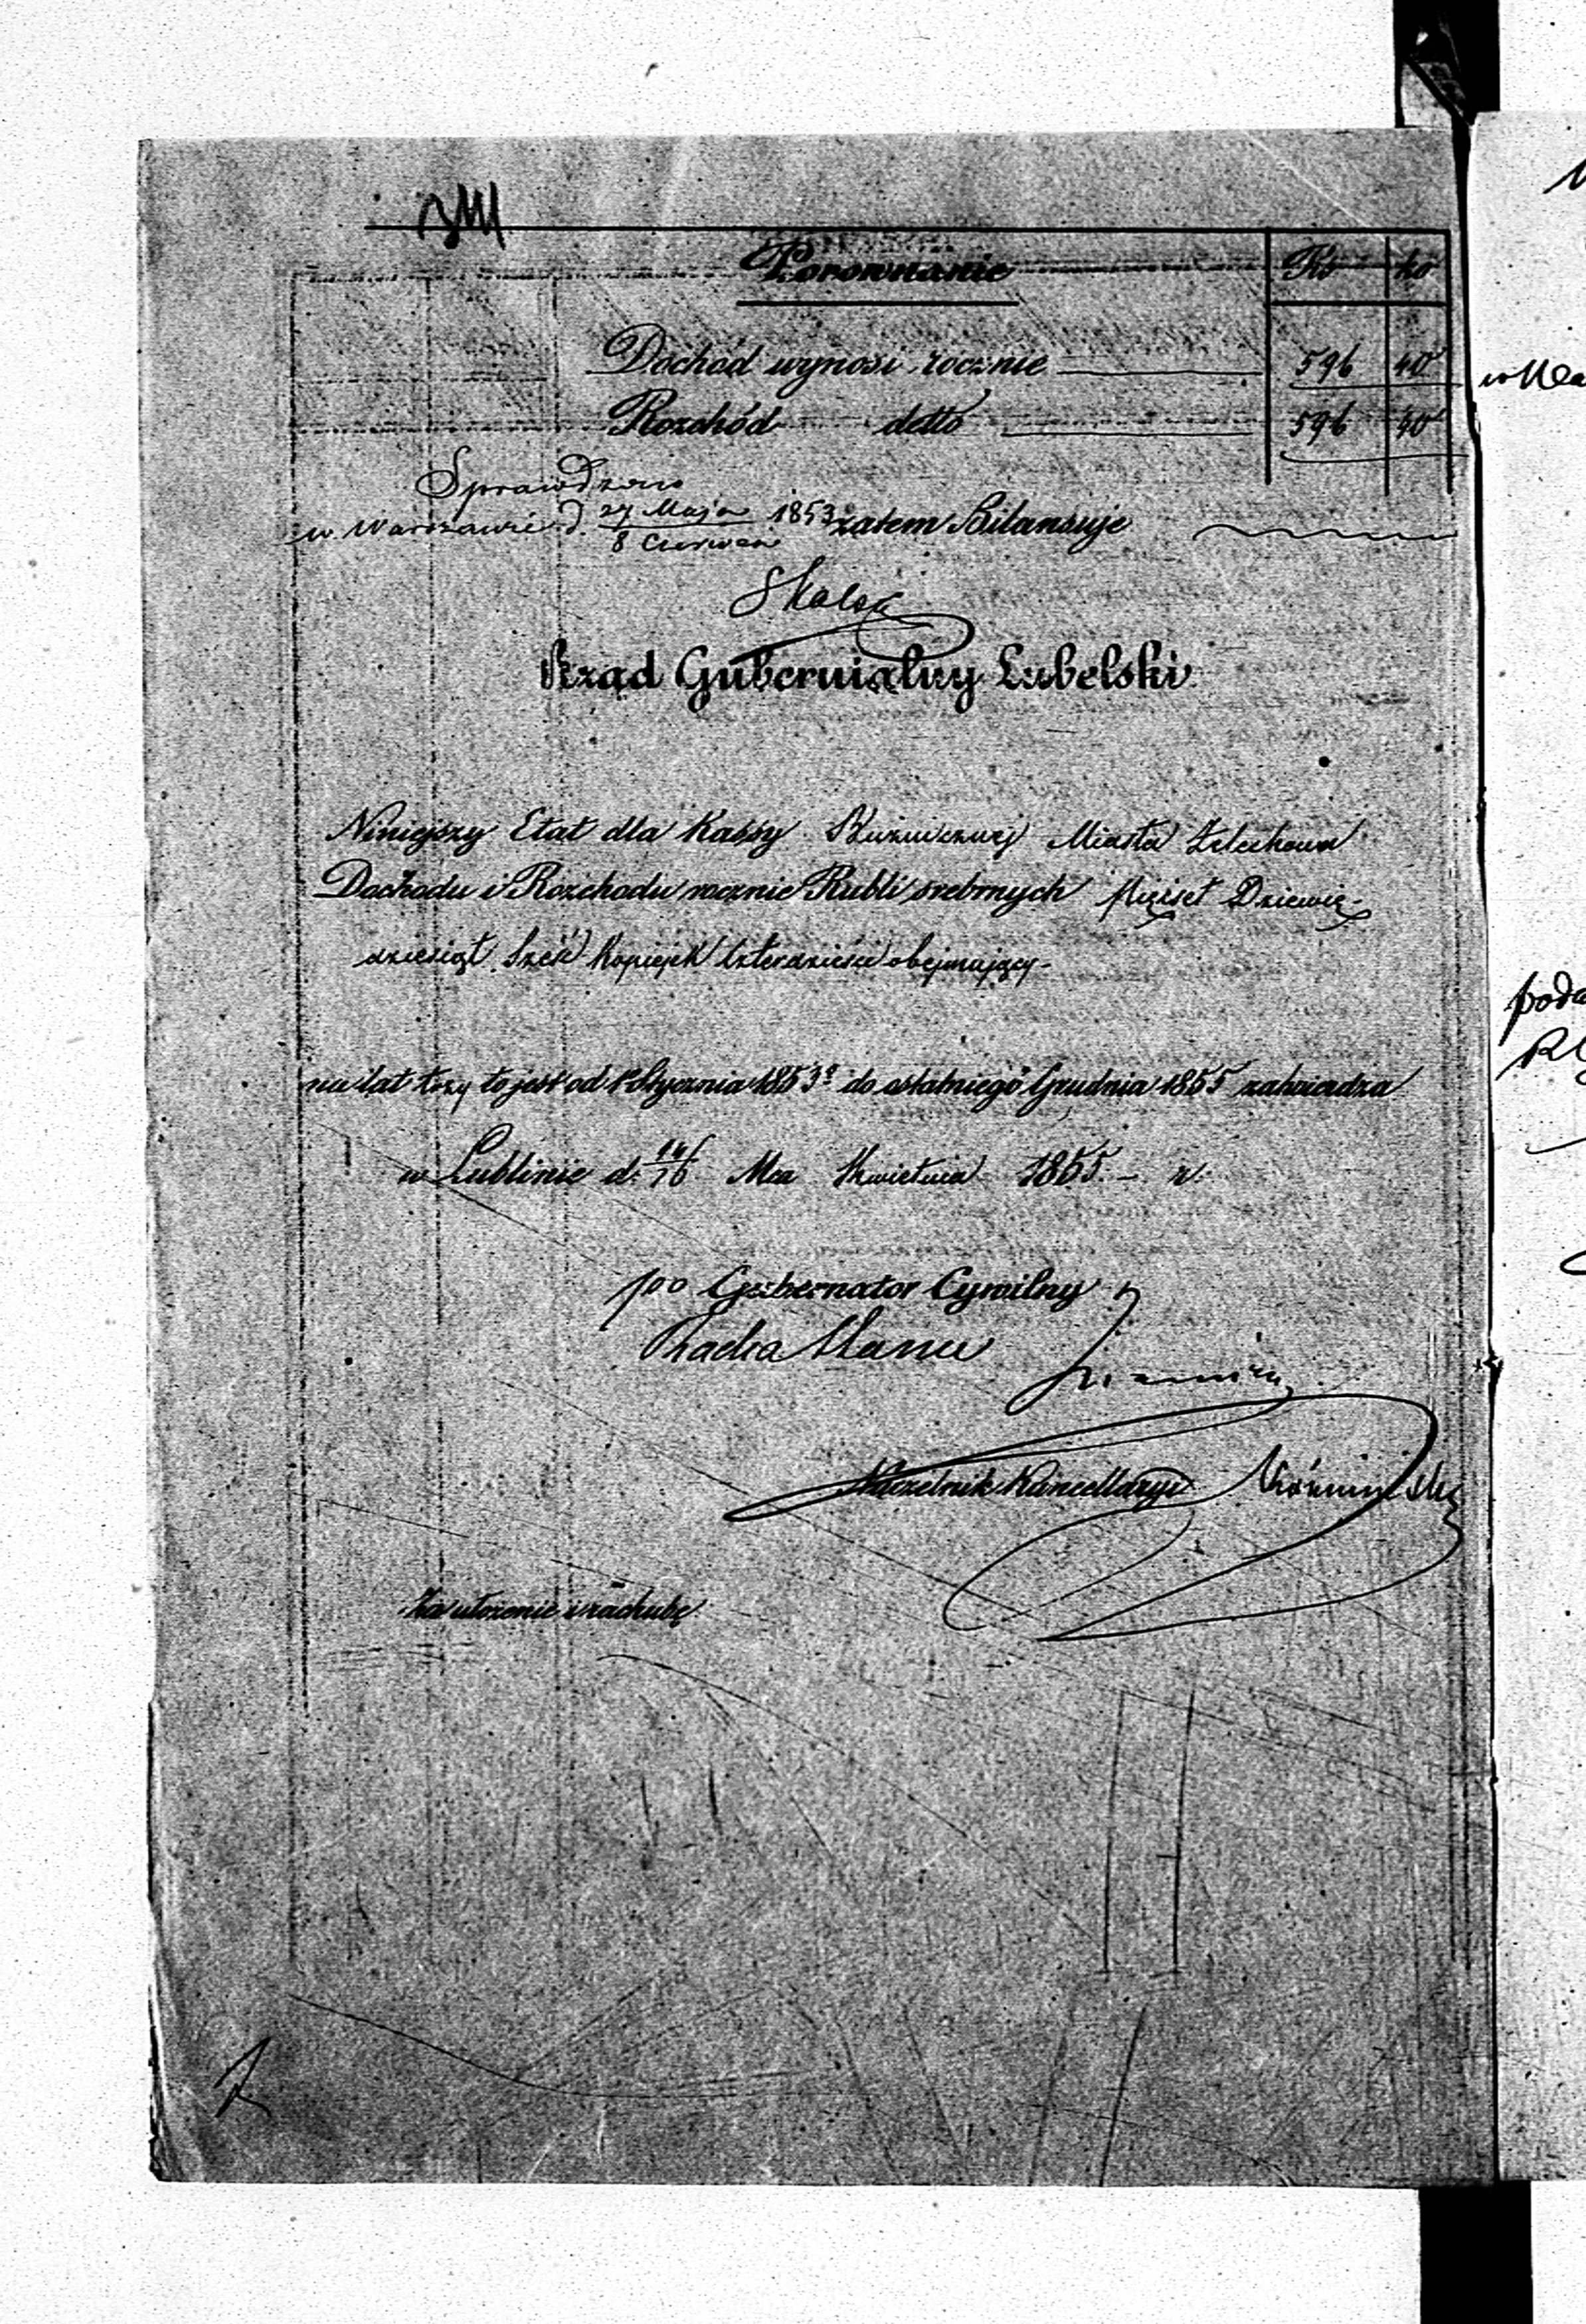 Porównanie Rs ko
Dochód wynosi rocznie 596 40
Rozchód detto 596 40
Sprawdzono
w Warszawie d. 27 Maja / 8 Czerwca 1853 zatem Bilansuje
Rząd Gubernialny Lubelski
Niniejszy Etat dla Kassy Bużniczney Miasta Żelechowa
Dochodu i Rozchodu rocznie Rubli srebrnych pięćset Dziewię-
dziesiąt Sześć Kopiejek Czterdzieści obejmujący-
na lat trzy to jest od 1 Stycznia 1853 do ostatniego Grudnia 1855 zatwierdza
w Lublinie d. Mca Kwietnia 1855. – r.
po Gubernator Cywilny
Radca Stanu
Naczelnik Kancellaryi
Za ułożenie i rachubę
poda